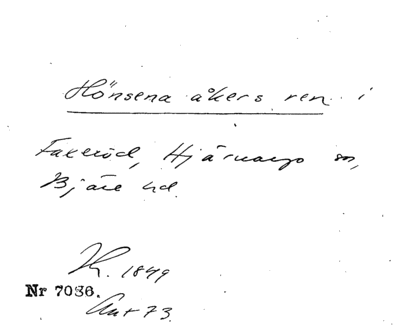 Hönsena åkers ren i
Faxeröd, Hjärnarps sn,
Bjäre hd.
K. 1849
Nr 7036.
Ant 73